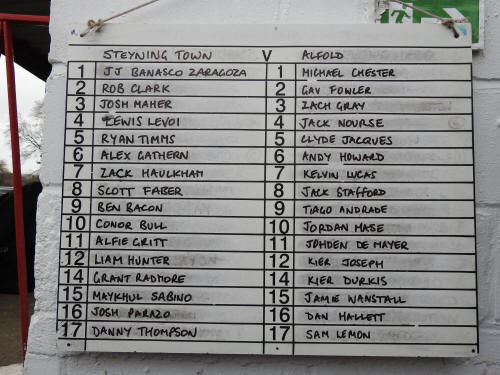 17
STEYNING TOWN V ALFOLD
1 JJ BANASCO ZARAGOZA 1 MICHAEL CHESTER
2 ROB CLARK 2 GAV FOWLER
3 JOSH MAHER 3 ZACH GRAY
4 LEWIS LEVOI 4 JACK NOURSE
5 RYAN TIMMS 5 CLYDE JACQUES
6 ALEX GATHERN 6 ANDY HOWARD
7 ZACK HAULKHAM 7 KELVIN LUCAS
8 SCOTT FABER 8 JACK STAFFORD
9 BEN BACON 9 TIAGO ANDRADE
10 CONOR BULL 10 JORDAN MASE
11 ALFIE GRITT 11 JOHDEN DE MAYER
12 LIAM HUNTER 12 KIER JOSEPH
14 GRANT RADMORE 14 KIER DURKIS
15 MAYKHUL SABINO 15 JAMIE WANSTALL
16 JOSH PARAZO 16 DAN HALLETT
17 DANNY THOMPSON 17 SAM LEMON